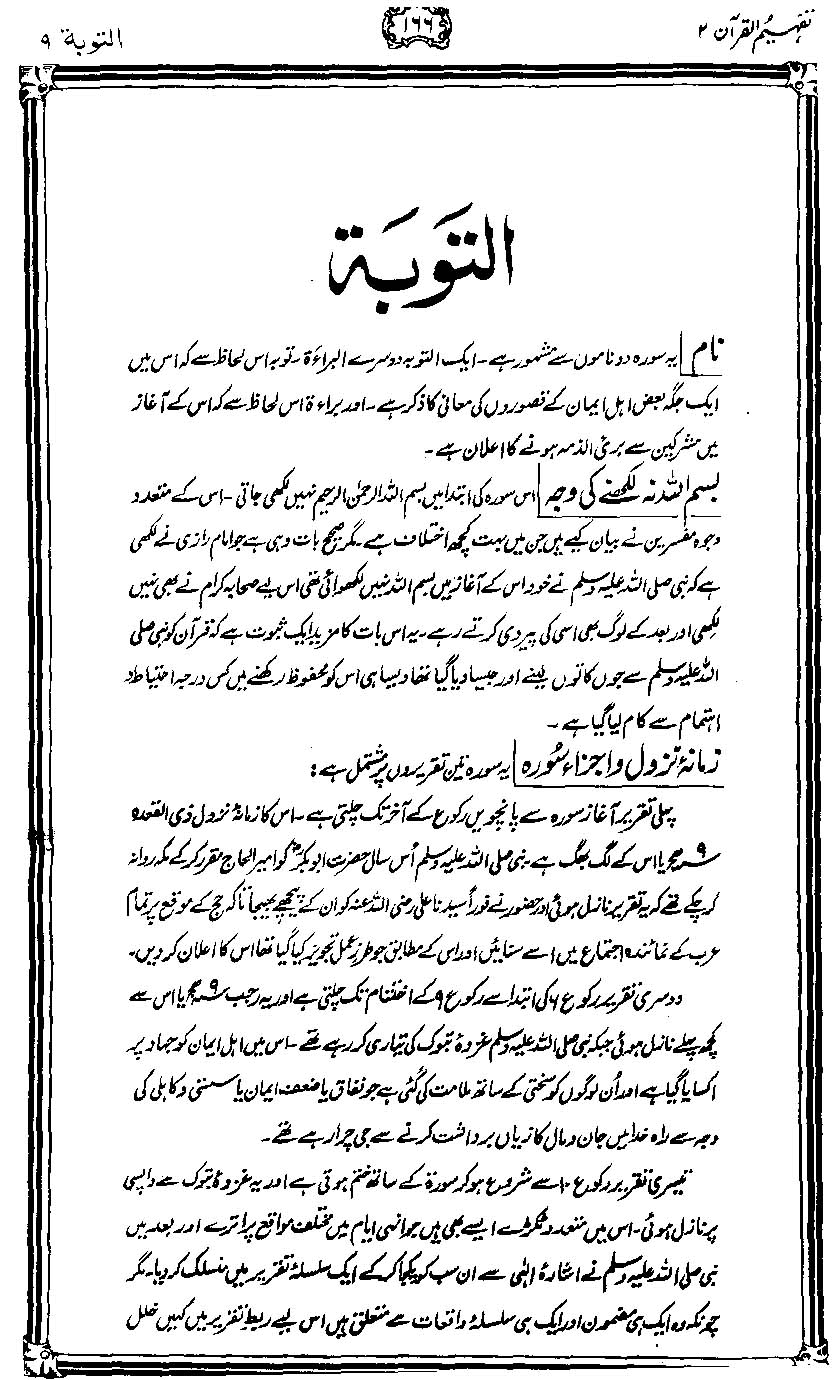 تفہیم القرآن ۲
۱۶۶
التوبة ۹
التَوبَة
نام یہ سورہ دو ناموں سے مشہور ہے۔ ایک التوبہ دوسرے البراءۃ۔ توبہ اس لحاظ سے کہ اس میں
ایک جگہ بعض اہل ایمان کے قصوروں کی معافی کا ذکر ہے۔ اور براءۃ اس لحاظ سے کہ اس کے آغاز
میں مشرکین سے بری الذمہ ہونے کا اعلان ہے۔
بسم اللہ نہ لکھنے کی وجہ اس سورہ کی ابتدا میں بسم اللہ الرحمٰن الرحیم نہیں لکھی جاتی۔ اس کے متعدد
وجوہ مفسرین نے بیان کیے ہیں جن میں بہت کچھ اختلاف ہے۔ مگر صحیح بات وہی ہے جو امام رازی نے لکھی
ہے کہ نبی صلی اللہ علیہ وسلم نے خود اس کے آغاز میں بسم اللہ نہیں لکھوائی تھی اس لیے صحابہ کرام نے بھی نہیں
لکھی اور بعد کے لوگ بھی اسی کی پیروی کرتے رہے۔ یہ اس بات کا مزید ایک ثبوت ہے کہ قرآن کو نبی صلی
اللہ علیہ وسلم سے جوں کا توں لینے اور جیسا دیا گیا تھا ویسا ہی اس کو محفوظ رکھنے میں کس درجہ احتیاط و
اہتمام سے کام لیا گیا ہے۔
زمانۂ نزول و اجزاء سُورہ یہ سورہ تین تقریروں پر مشتمل ہے:
پہلی تقریر آغاز سورہ سے پانچویں رکوع کے آخر تک چلتی ہے۔ اس کا زمانۂ نزول ذی القعدہ
۹ھ یا اس کے لگ بھگ ہے۔ نبی صلی اللہ علیہ وسلم اُس سال حضرت ابوبکرؓ کو امیر الحاج مقرر کر کے مکہ روانہ
کر چکے تھے کہ یہ تقریر نازل ہوئی اور حضور نے فوراً سیدنا علی رضی اللہ عنہ کو ان کے پیچھے بھیجا تاکہ حج کے موقع پر تمام
عرب کے نمائندہ اجتماع میں اسے سنائیں اور اس کے مطابق جو طرز عمل تجویز کیا گیا تھا اس کا اعلان کر دیں۔
دوسری تقریر رکوع ۶ کی ابتدا سے رکوع ۹ کے اختتام تک چلتی ہے اور یہ رجب ۹ھ یا اس سے
کچھ پہلے نازل ہوئی جبکہ نبی صلی اللہ علیہ وسلم غزوۂ تبوک کی تیاری کر رہے تھے۔ اس میں اہل ایمان کو جہاد پر
اکسایا گیا ہے اور اُن لوگوں کو سختی کے ساتھ ملامت کی گئی ہے جو نفاق یا ضعف ایمان یا سستی و کاہلی کی
وجہ سے راہ خدا میں جان و مال کا زیاں برداشت کرنے سے جی چرا رہے تھے۔
تیسری تقریر رکوع ۱۰ سے شروع ہو کر سورۃ کے ساتھ ختم ہوتی ہے اور یہ غزوۂ تبوک سے واپسی
پر نازل ہوئی۔ اس میں متعدد ٹکڑے ایسے بھی ہیں جو انہی ایام میں مختلف مواقع پر اترے اور بعد میں
نبی صلی اللہ علیہ وسلم نے اشارۂ الٰہی سے ان سب کو یکجا کر کے ایک سلسلۂ تقریر میں منسلک کر دیا۔ مگر
چونکہ وہ ایک ہی مضمون اور ایک ہی سلسلۂ واقعات سے متعلق ہیں اس لیے ربط تقریر میں کہیں خلل